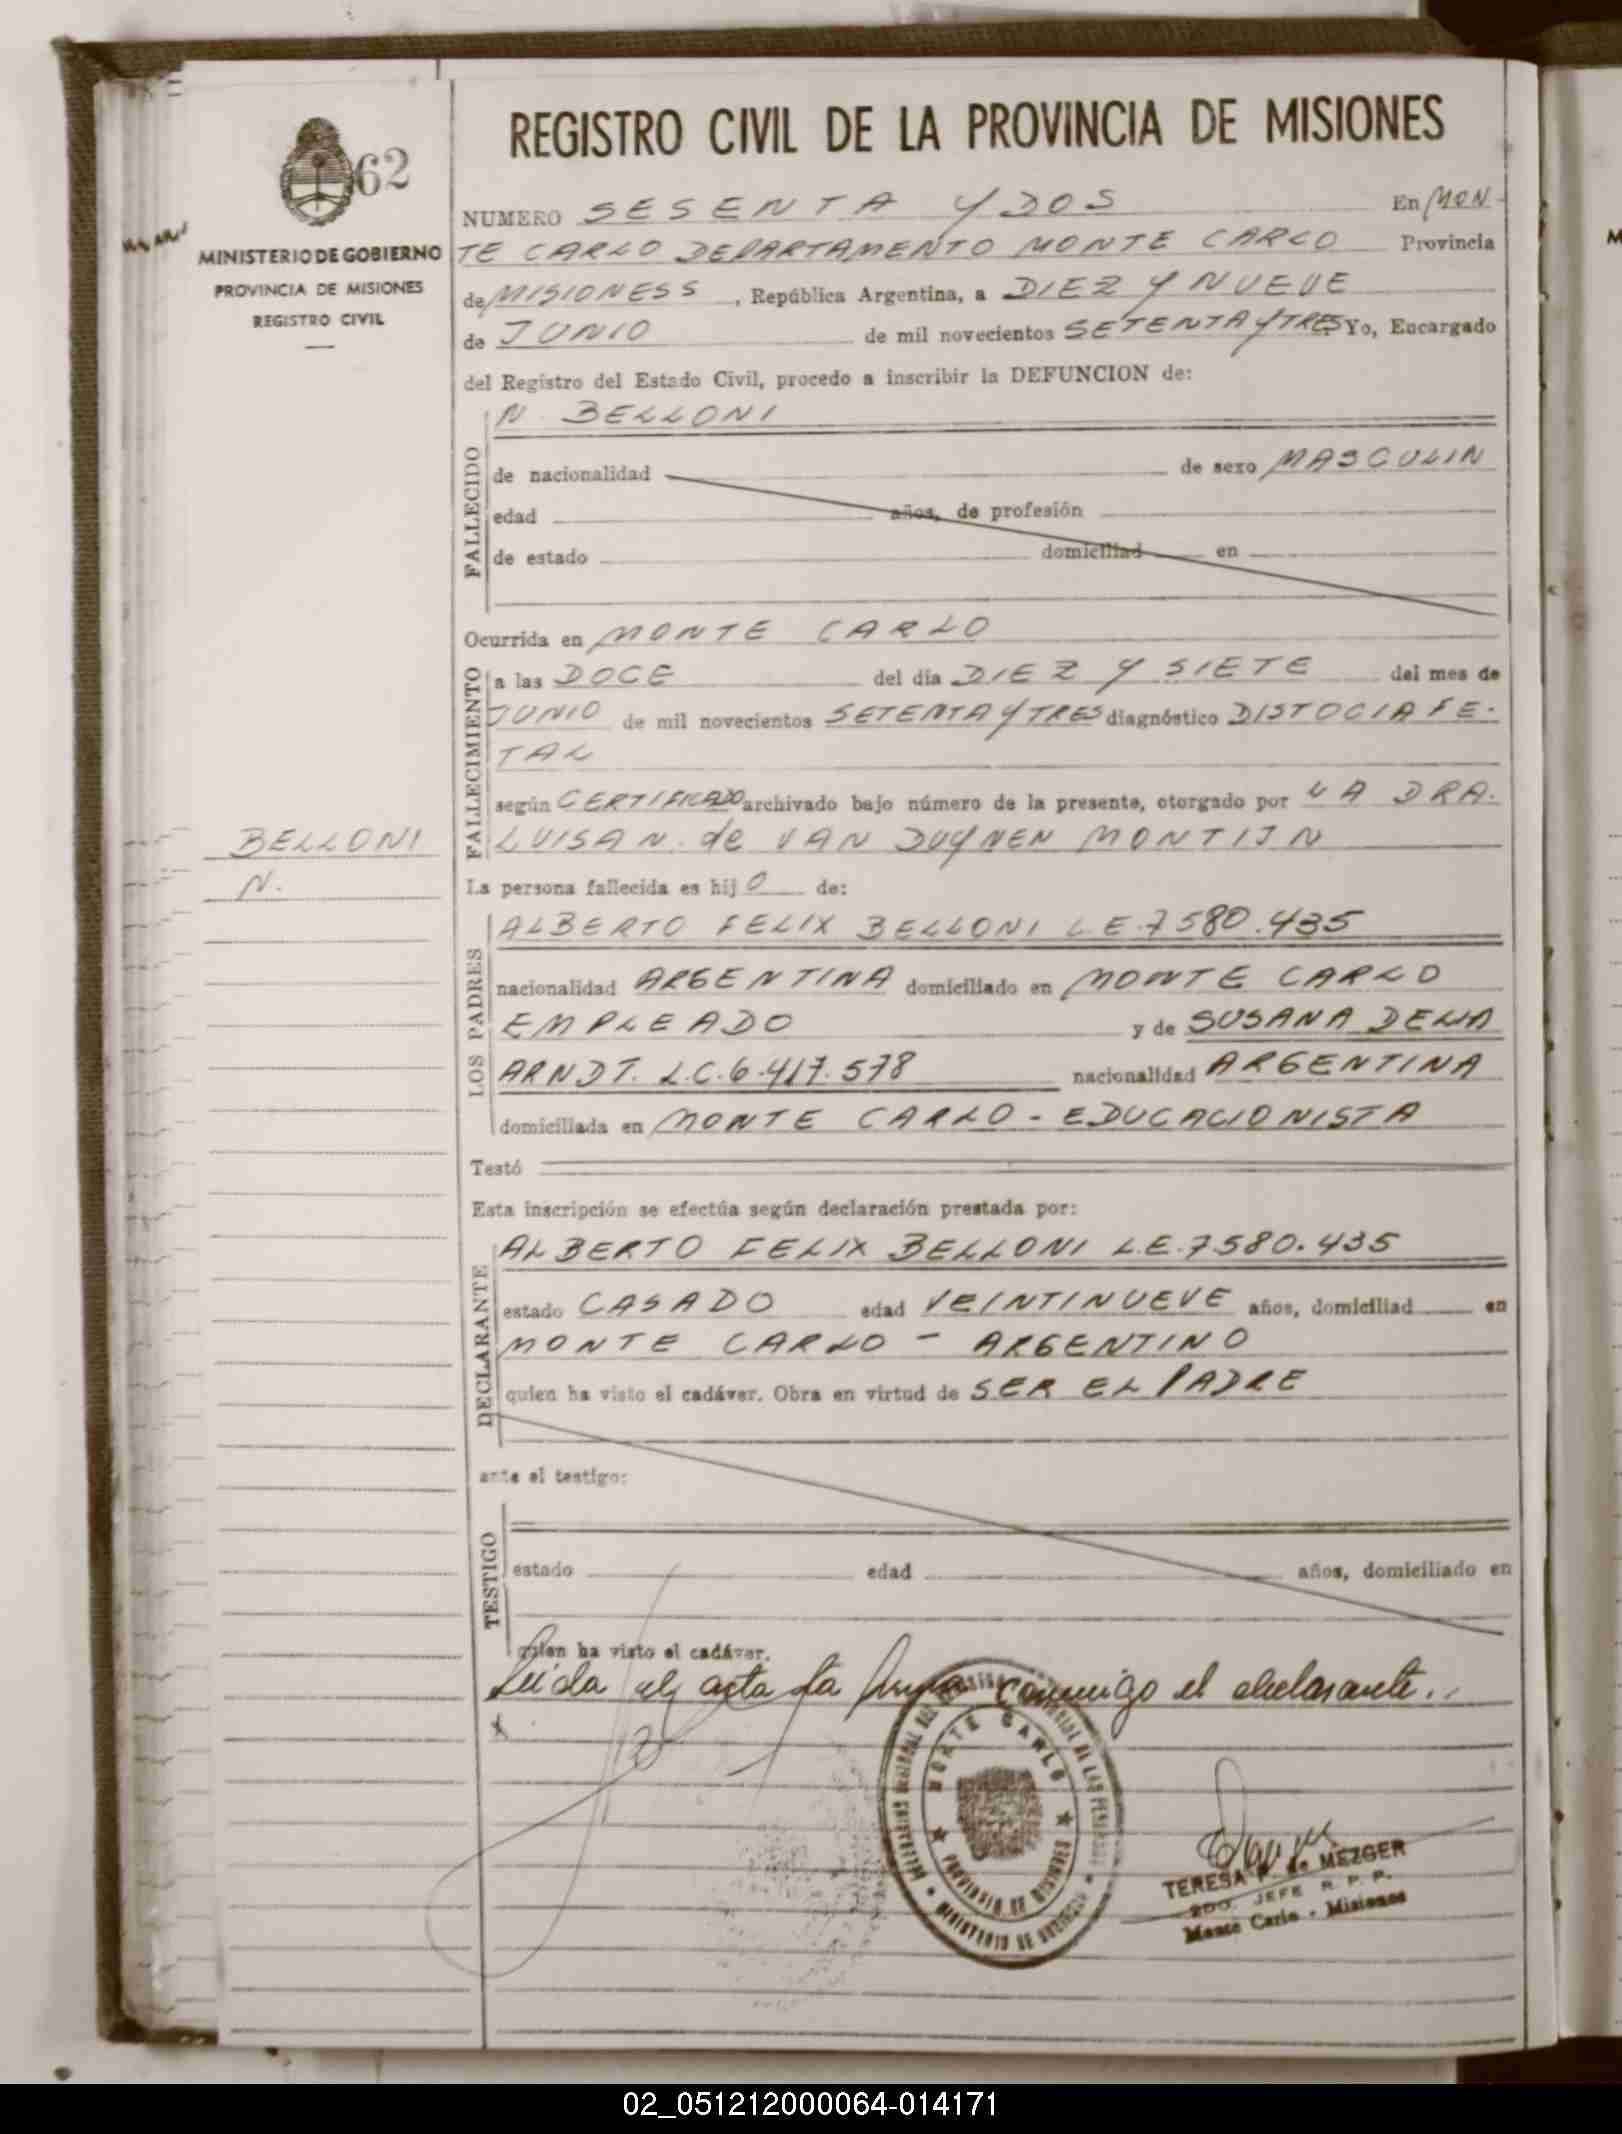 REGISTRO CIVIL DE LA PROVINCIA DE MISIONES
62
MINISTERIO DE GOBIERNO
PROVINCIA DE MISIONES
REGISTRO CIVIL
NUMERO SESENTA Y DOS En MON-
TE CARLO DEPARTAMENTO MONTE CARLO Provincia
de MISIONESS, República Argentina, a DIEZ Y NUEVE
de JUNIO de mil novecientos SETENTA Y TRES Yo, Encargado
del Registro del Estado Civil, procedo a inscribir la DEFUNCION de:
N. BELLONI
FALLECIDO
de nacionalidad de sexo MASCULIN
edad años, de profesión
de estado domiciliad en
Ocurrida en MONTE CARLO
FALLECIMIENTO
a las DOCE del día DIEZ Y SIETE del mes de
JUNIO de mil novecientos SETENTA Y TRES diagnóstico DISTOCIA FE-
TAL
según CERTIFICADO archivado bajo número de la presente, otorgado por LA DRA.
LUISA N. de VAN DUYNEN MONTIJN
BELLONI
N.
La persona fallecida es hij O de:
LOS PADRES
ALBERTO FELIX BELLONI L.E.7580.435
nacionalidad ARGENTINA domiciliado en MONTE CARLO
EMPLEADO y de SUSANA DELIA
ARNDT. L.C.6.417.578 nacionalidad ARGENTINA
domiciliada en MONTE CARLO - EDUCACIONISTA
Testó
Esta inscripción se efectúa según declaración prestada por:
DECLARANTE
ALBERTO FELIX BELLONI L.E.7580.435
estado CASADO edad VEINTINUEVE años, domiciliad en
MONTE CARLO - ARGENTINO
quien ha visto el cadáver. Obra en virtud de SER EL PADRE
ante el testigo:
TESTIGO
estado edad años, domiciliado en
quien ha visto el cadáver.
Leida el acta la firma conmigo el declarante..
MONTE CARLO
PROVINCIA DE MISIONES
TERESA P. de MEZGER
2DO. JEFE R. P. P.
Monte Carlo - Misiones
02_051212000064-014171